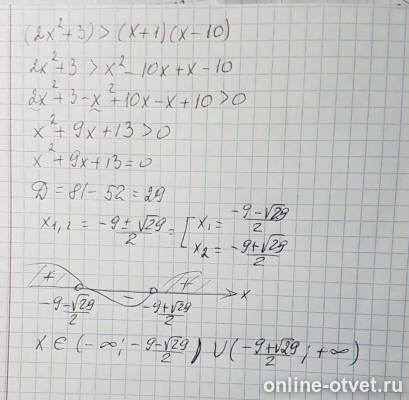 (2x²+3)>(x+1)(x-10)
2x²+3>x²-10x+x-10
2x²+3-x²+10x-x+10>0
x²+9x+13>0
x²+9x+13=0
D=81-52=29
x₁,₂ = (-9±√29)/2 = [x₁ = (-9-√29)/2
x₂ = (-9+√29)/2
+ - + x
(-9-√29)/2 (-9+√29)/2
x∈(-∞; (-9-√29)/2)∪((-9+√29)/2; +∞)
online-otvet.ru